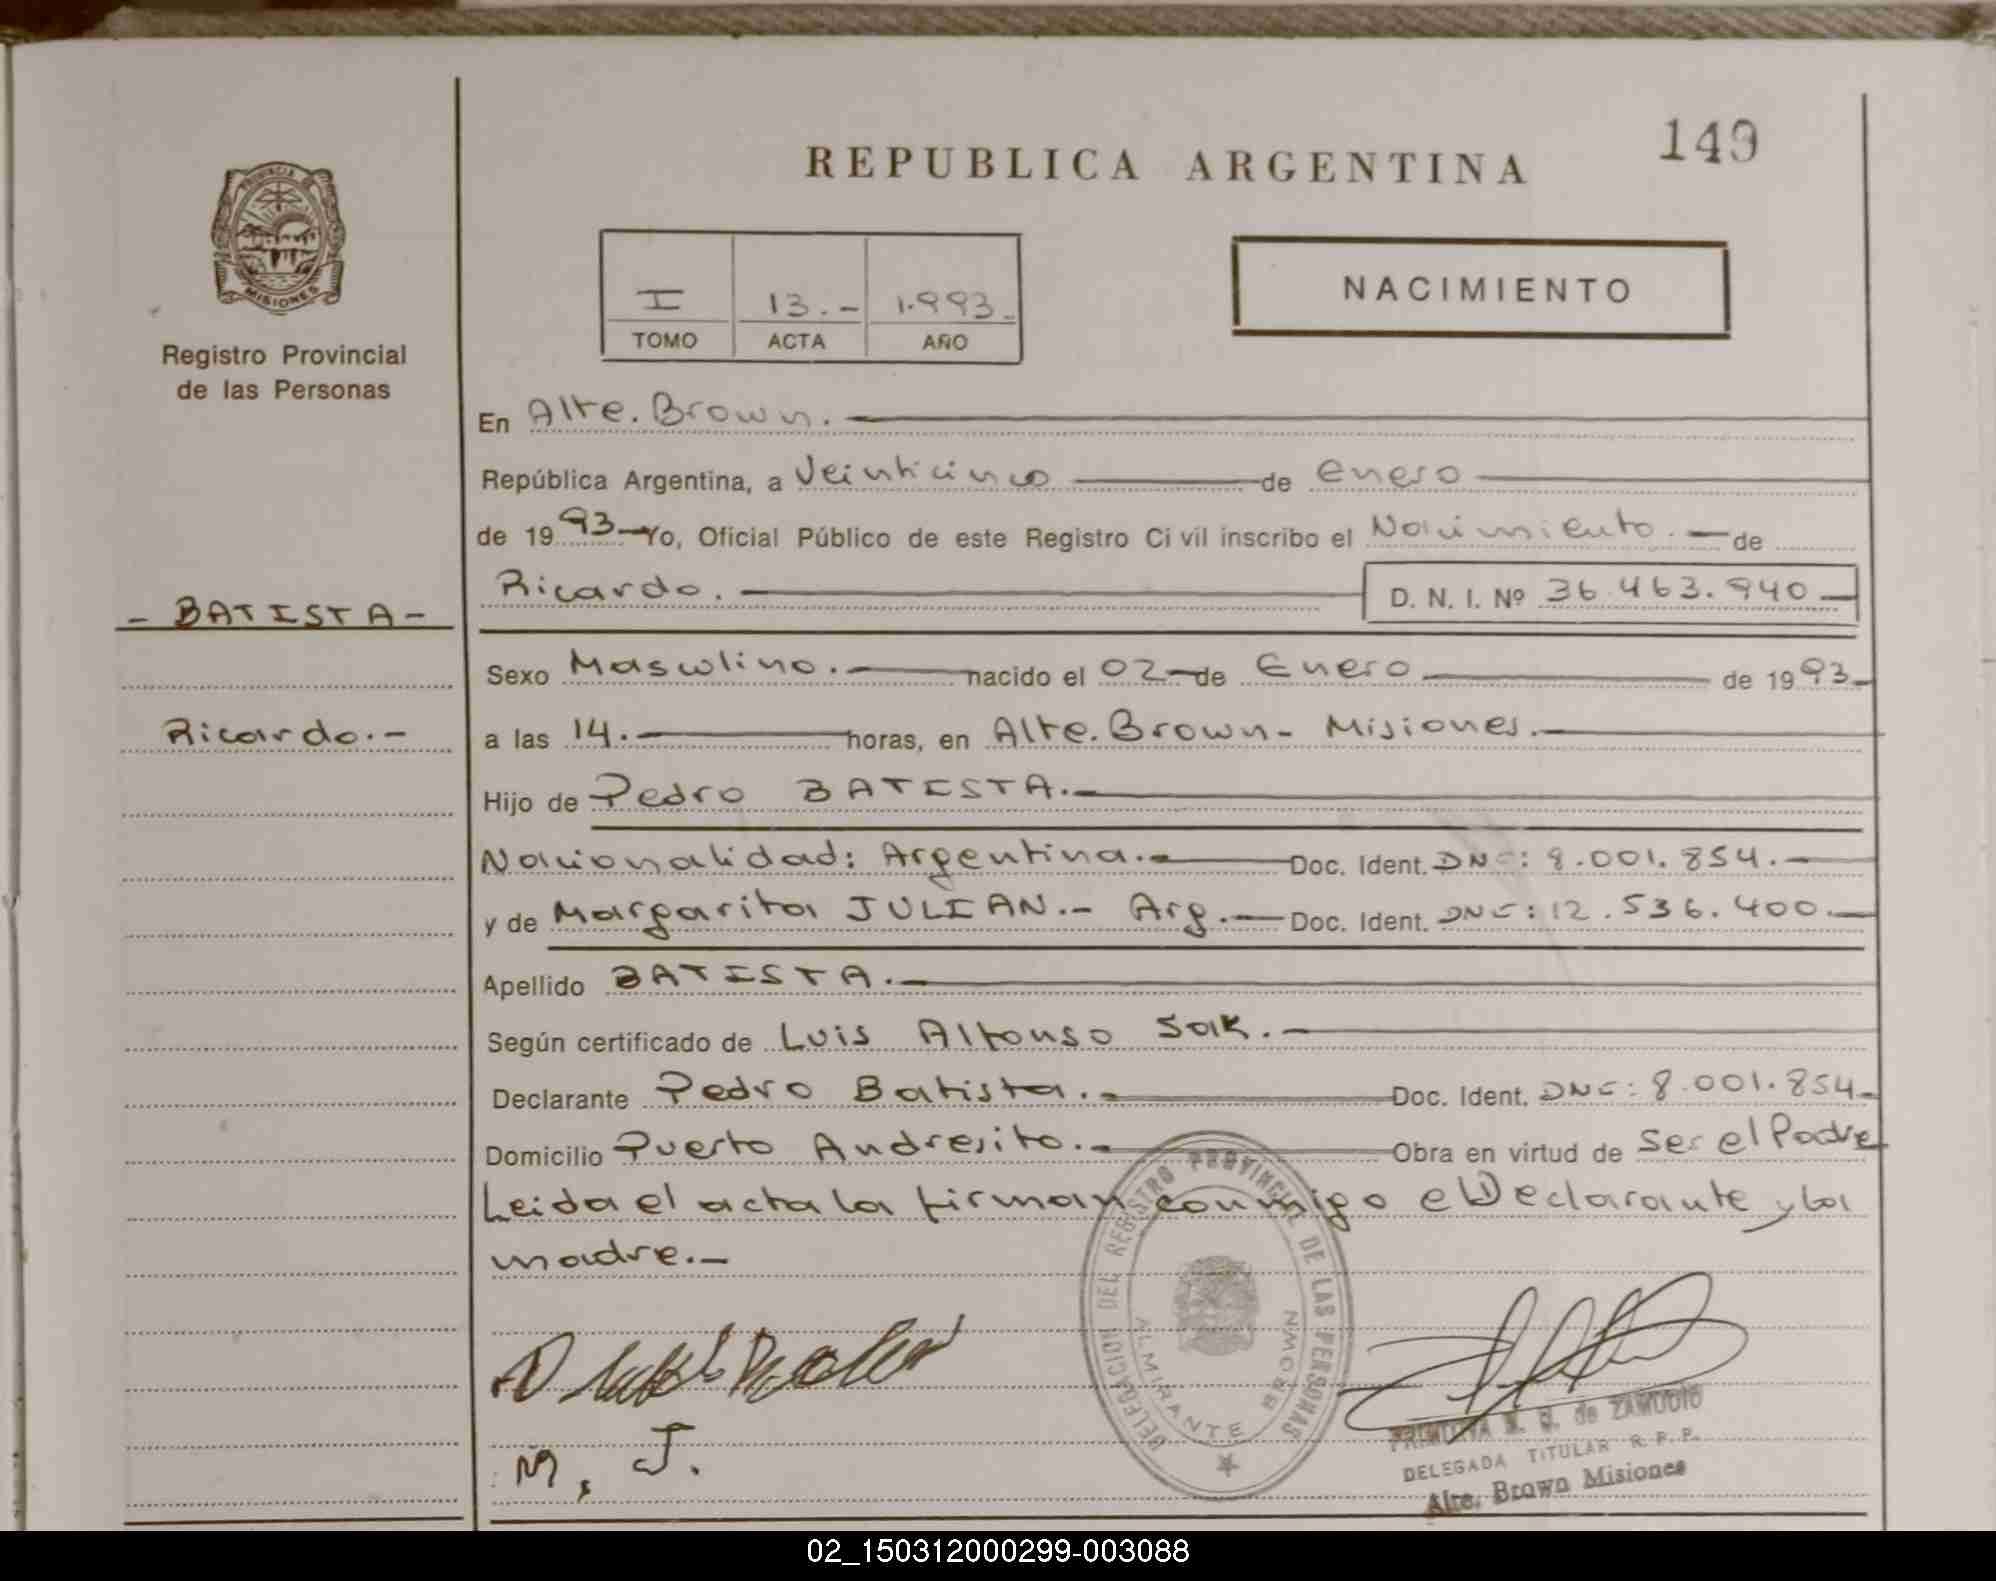 REPUBLICA ARGENTINA
149
PROVINCIA DE
MISIONES
Registro Provincial
de las Personas
I 13.- 1.993.-
TOMO ACTA AÑO
NACIMIENTO
En Alte. Brown.
República Argentina, a Veinticinco de enero
de 1993 Yo, Oficial Público de este Registro Civil inscribo el Nacimiento.- de
Ricardo. D. N. I. Nº 36.463.940
- BATISTA -
Sexo Masculino. nacido el 02 de Enero de 1993
Ricardo.-
a las 14. horas, en Alte. Brown- Misiones.
Hijo de Pedro BATISTA.
Nacionalidad: Argentina. Doc. Ident. DNI: 8.001.854.
y de Margarita JULIAN.- Arg. Doc. Ident. DNI: 12.536.400
Apellido BATISTA.
Según certificado de Luis Alfonso Sak.
Declarante Pedro Batista. Doc. Ident. DNI: 8.001.854
Domicilio Puerto Andresito. Obra en virtud de Ser el Padre
Leida el acta la firman conmigo el Declarante y la
madre.-
DELEGACION DEL REGISTRO PROVINCIAL DE LAS PERSONAS
ALMIRANTE BROWN
M, J.
de ZAMUDIO
DELEGADA TITULAR R. P. P.
Alte. Brown Misiones
02_150312000299-003088